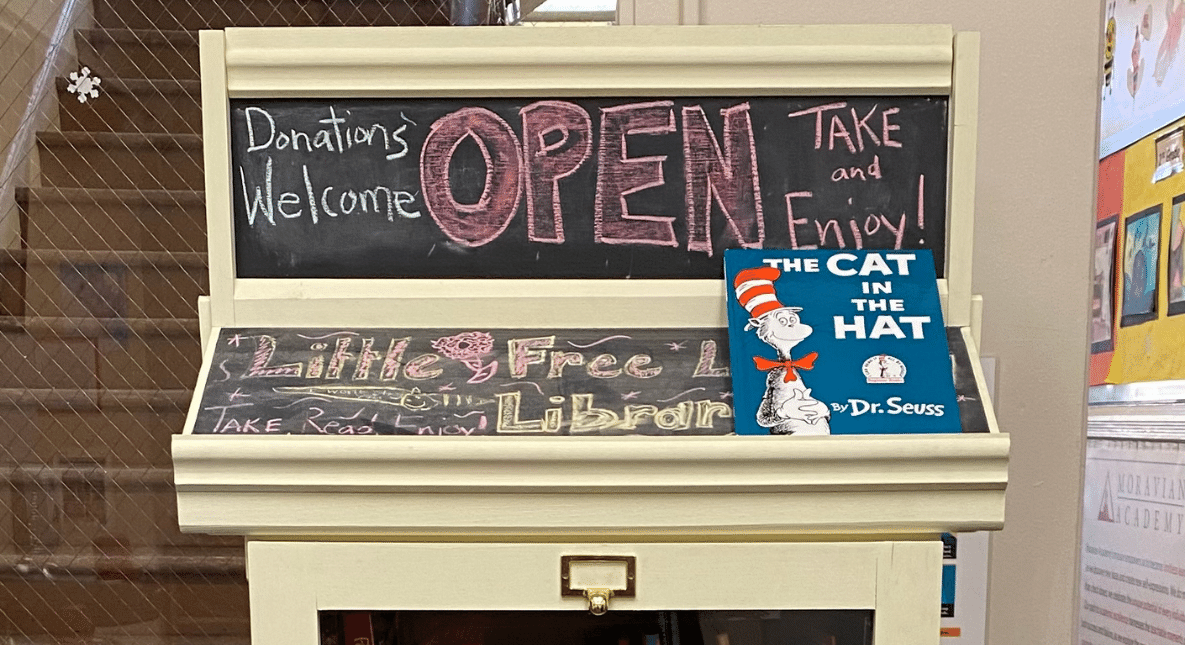 Donations
Welcome
OPEN
TAKE
and
Enjoy!
THE CAT
IN
THE
HAT
By Dr. Seuss
Little Free L
Librar
TAKE, Read, Enjoy!
MORAVIAN
ACADEMY